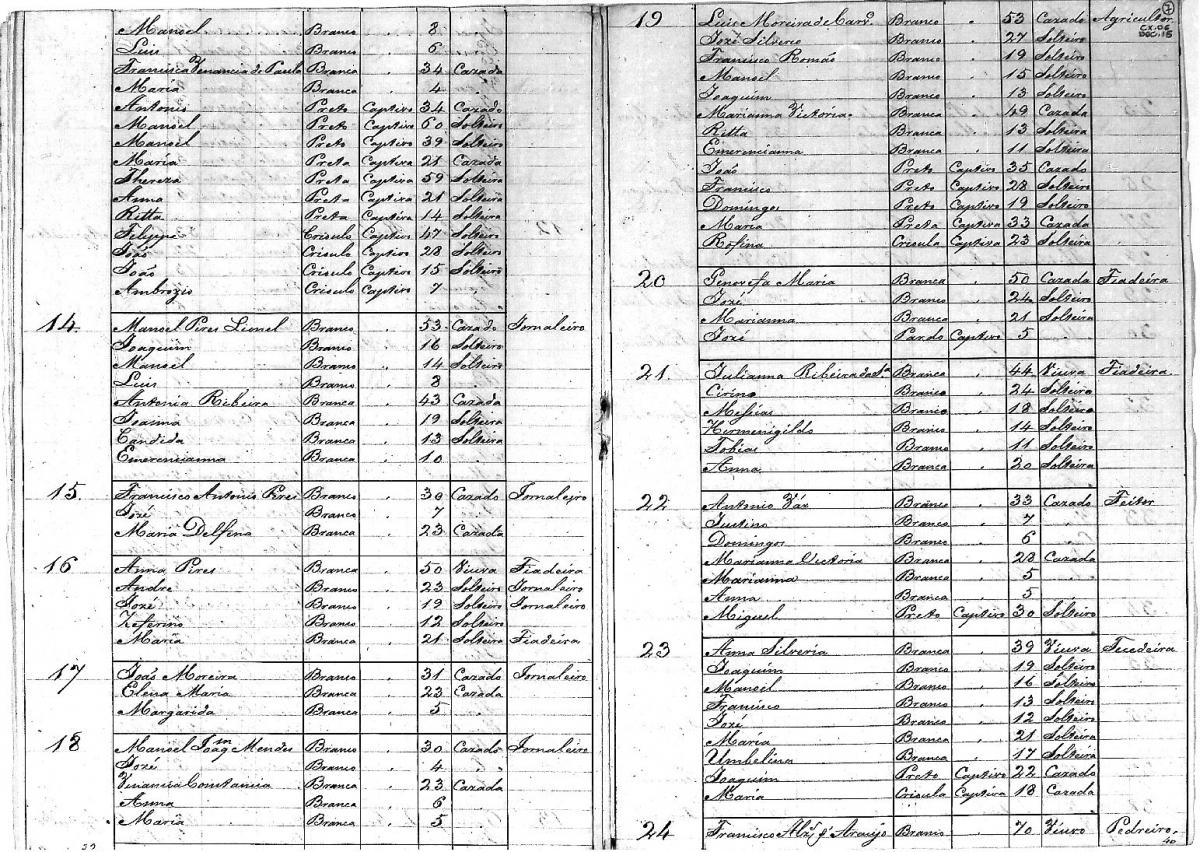 Manoel Branco . 8 .
Luis Branco . 6 .
Francisca Venancia de Paula Branca . 34 Cazada
Maria Branca . 4 .
Antonio Preto Captivo 34 Cazado
Manoel Preto Captivo 60 Solteiro
Manoel Preto Captivo 39 Solteiro
Maria Preta Captiva 21 Cazada
Thereza Preta Captiva 59 Solteira
Anna Preta Captiva 21 Solteira
Ritta Preta Captiva 14 Solteira
Felippe Crioulo Captivo 47 Solteiro
João Crioulo Captivo 28 Solteiro
João Crioulo Captivo 15 Solteiro
Ambrozio Crioulo Captivo 7 .
14 Manoel Pires Liomel Branco . 53 Cazado Jornaleiro
Joaquim Branco . 16 Solteiro
Manoel Branco . 14 Solteiro
Luis Branco . 8 .
Antonia Ribeira Branca . 43 Cazada
Joanna Branca . 19 Solteira
Candida Branca . 13 Solteira
Emerencianna Branca . 10
15 Francisco Antonio Pires Branco . 30 Cazado Jornaleyro
José Branco . 7 .
Maria Delfina Branca . 23 Cazada
16 Anna Pires Branca . 50 Viuva Fiadeira
Andre Branco . 23 Solteiro Jornaleiro
José Branco . 19 Solteiro Jornaleiro
Zeferino Branco . 12 Solteiro
Maria Branca . 21 Solteira Fiadeira
17 João Moreira Branco . 31 Cazado Jornaleiro
Elena Maria Branca . 23 Cazada
Margarida Branca . 5 .
18 Manoel Joaqm Mendes Branco . 30 Cazado Jornaleiro
José Branco . 4 .
Venancia Constancia Branca . 23 Cazada
Anna Branca . 6
Maria Branca . 5
19 Luis Moreira de Carvo Branco . 53 Cazado Agricultor
7
CX.06
DOC.15
José Silverio Branco . 27 Solteiro
Francisco Romão Branco . 19 Solteiro
Manoel Branco . 15 Solteiro
Joaquim Branco . 13 Solteiro
Marianna Victoria Branca . 49 Cazada
Ritta Branca . 13 Solteira
Emerencianna Branca . 11 Solteira
João Preto Captivo 35 Cazado
Francisco Preto Captivo 28 Solteiro
Domingos Preto Captivo 19 Solteiro
Maria Preta Captiva 33 Cazada
Rofina Crioula Captiva 23 Solteira
20 Genovefa Maria Branca . 50 Cazada Fiadeira
José Branco . 24 Solteiro
Marianna Branca . 21 Solteira
José Pardo Captivo 5 .
21 Julianna Ribeira da Sa Branca . 44 Viuva Fiadeira
Cirino Branco . 24 Solteiro
Messias Branco . 18 Solteiro
Hermenigildo Branco . 14 Solteiro
Tobias Branco . 11 Solteiro
Anna Branca . 20 Solteira
22 Antonio Váz Branco . 33 Cazado Feitor
Justino Branco . 7 .
Domingos Branco . 6 .
Marianna Victoria Branca . 28 Cazada
Marianna Branca . 5 .
Anna Branca . 5 .
Miguel Preto Captivo 30 Solteiro
23 Anna Silveria Branca . 39 Viuva Tecedeira
Joaquim Branco . 19 Solteiro
Manoel Branco . 16 Solteiro
Francisco Branco . 13 Solteiro
José Branco . 12 Solteiro
Maria Branca . 21 Solteira
Umbelina Branca . 17 Solteira
Joaquim Preto Captivo 22 Cazado
Maria Crioula Captiva 18 Cazada
24 Francisco Alz de Araujo Branco . 70 Viuvo Pedreiro
40